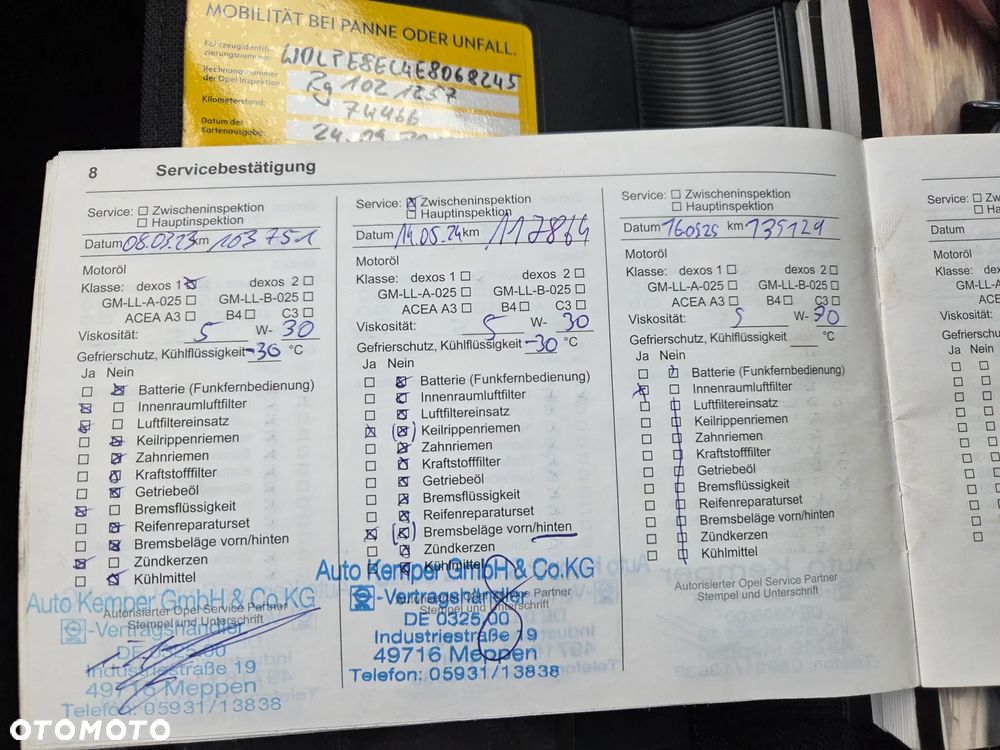 MOBILITÄT BEI PANNE ODER UNFALL.
Fahrzeugidentifi-
zierungsnummer: W0LPE8EC4E8068245
Rechnungsnummer
der Opel Inspektion: Rg 102 1257
Kilometerstand: 74466
Datum der
Kartenausgabe:
8 Servicebestätigung
Service: Zwischeninspektion
Hauptinspektion
Datum 08.03.23 km 103 751
Motoröl
Klasse: dexos 1 dexos 2
GM-LL-A-025 GM-LL-B-025
ACEA A3 B4 C3
Viskosität: 5 W- 30
Gefrierschutz, Kühlflüssigkeit -30 °C
Ja Nein
Batterie (Funkfernbedienung)
Innenraumluftfilter
Luftfiltereinsatz
Keilrippenriemen
Zahnriemen
Kraftstofffilter
Getriebeöl
Bremsflüssigkeit
Reifenreparaturset
Bremsbeläge vorn/hinten
Zündkerzen
Kühlmittel
Auto Kemper GmbH & Co.KG
Autorisierter Opel Service Partner
Stempel und Unterschrift
-Vertragshändler
DE 0325.00
Industriestraße 19
49716 Meppen
Telefon: 05931/13838
Service: Zwischeninspektion
Hauptinspektion
Datum 14.05.24 km 117864
Motoröl
Klasse: dexos 1 dexos 2
GM-LL-A-025 GM-LL-B-025
ACEA A3 B4 C3
Viskosität: 5 W- 30
Gefrierschutz, Kühlflüssigkeit -30 °C
Ja Nein
Batterie (Funkfernbedienung)
Innenraumluftfilter
Luftfiltereinsatz
Keilrippenriemen
Zahnriemen
Kraftstofffilter
Getriebeöl
Bremsflüssigkeit
Reifenreparaturset
Bremsbeläge vorn/hinten
Zündkerzen
Kühlmittel
Auto Kemper GmbH & Co.KG
Autorisierter Opel Service Partner
Stempel und Unterschrift
-Vertragshändler
DE 0325.00
Industriestraße 19
49716 Meppen
Telefon: 05931/13838
Service: Zwischeninspektion
Hauptinspektion
Datum 160525 km 135129
Motoröl
Klasse: dexos 1 dexos 2
GM-LL-A-025 GM-LL-B-025
ACEA A3 B4 C3
Viskosität: 5 W-
Gefrierschutz, Kühlflüssigkeit °C
Ja Nein
Batterie (Funkfernbedienung)
Innenraumluftfilter
Luftfiltereinsatz
Keilrippenriemen
Zahnriemen
Kraftstofffilter
Getriebeöl
Bremsflüssigkeit
Reifenreparaturset
Bremsbeläge vorn/hinten
Zündkerzen
Kühlmittel
Autorisierter Opel Service Partner
Stempel und Unterschrift
Service:
Datum
Motoröl
Klasse:
GM-LL-A
ACEA
Viskosität:
Gefrierschutz
Ja Nein
OTOMOTO